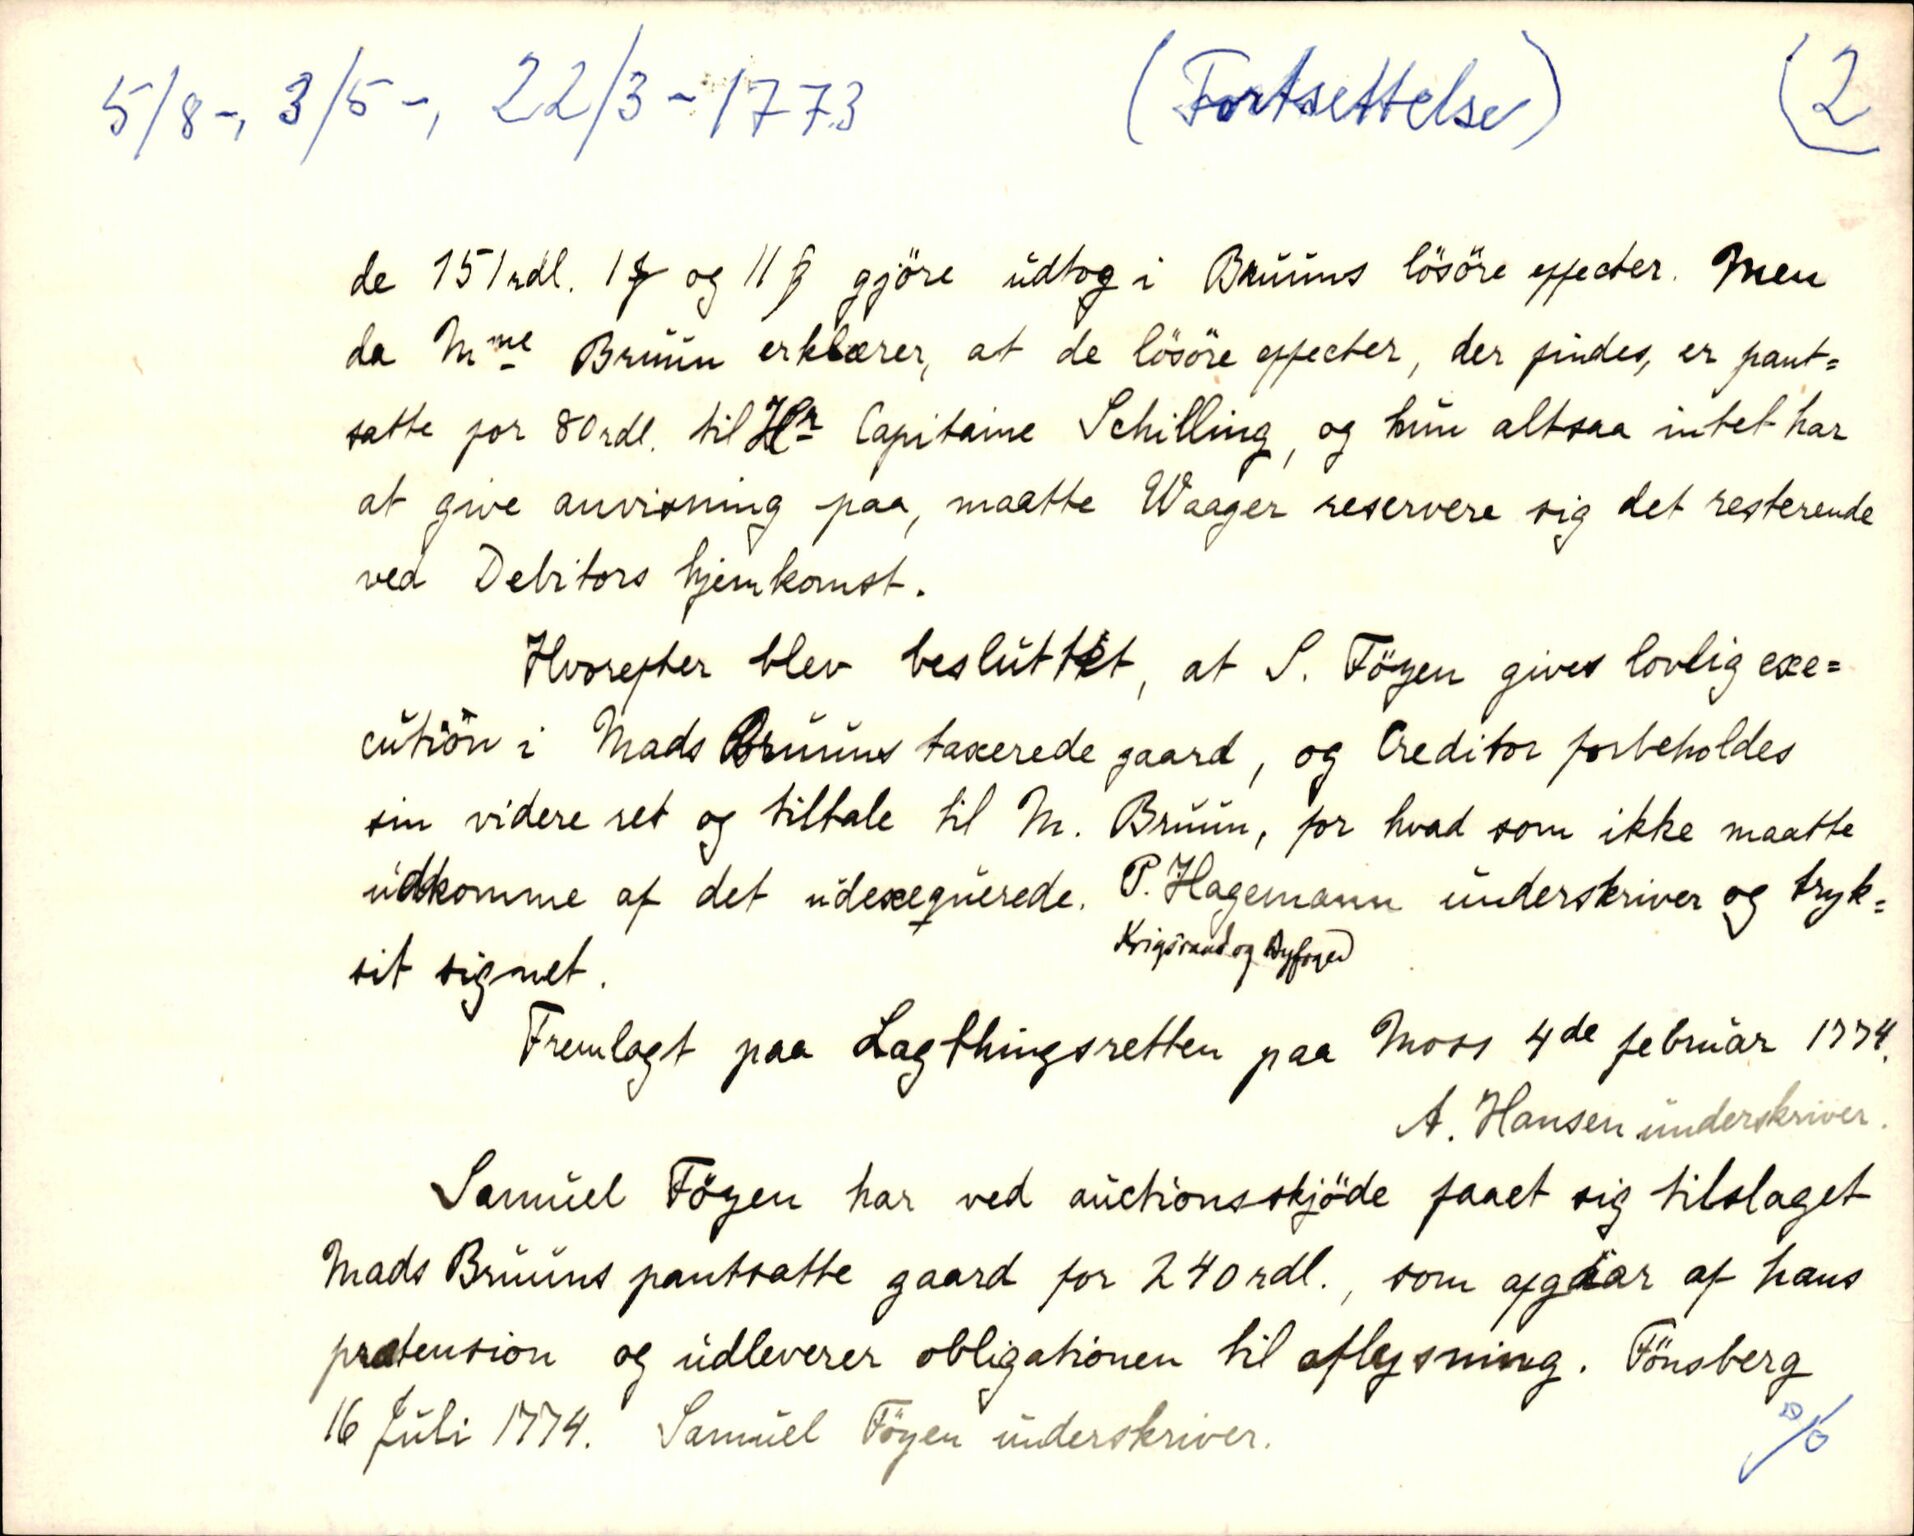 5/8-, 3/5-, 22/3-1773 (Fortsettelse) (2
de 151 rdl. 1 og 11 gjöre udtog i Bruuns lösöre effecter. Men
da Mme Bruun erklærer, at de lösöre effecter, der findes, er pant=
satte for 80 rdl. til Hr Capitaine Schilling, og hun altsaa intet har
at give anvisning paa, maatte Waager reservere sig det resterende
ved Debitors hjemkomst.
Hvorefter blev besluttet, at S. Föyen gives lovlig exe=
cution i Mads Bruuns taxerede gaard, og Creditor forbeholdes
sin videre ret og tiltale til M. Bruun, for hvad som ikke maatte
udkomme af det udexequerede. P. Hagemann underskriver og tryk=
Krigsraad og Byfoged
sit signet.
Fremlagt paa Lagthingsretten paa Moss 4de februar 1774.
A. Hansen underskriver.
Samuel Föyen har ved auctionsskjöde faaet sig tilslaget
Mads Bruuns pantsatte gaard for 240 rdl., som afgaar af hans
prætension og udleverer obligationen til aflysning. Tönsberg
16 Juli 1774. Samuel Föyen underskriver.